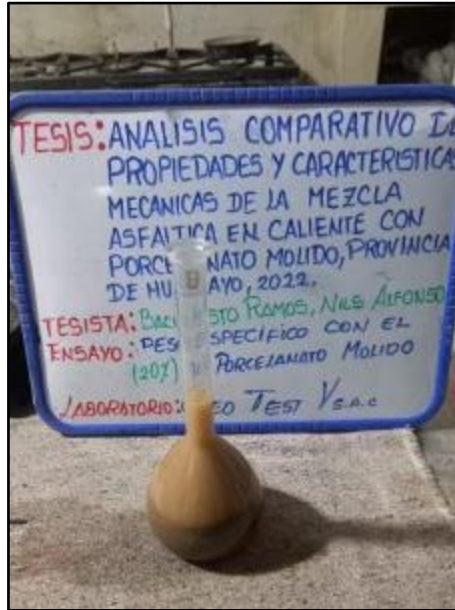 TESIS: ANALISIS COMPARATIVO DE
PROPIEDADES Y CARACTERISTICAS
MECANICAS DE LA MEZCLA
ASFALTICA EN CALIENTE CON
PORCELANATO MOLIDO, PROVINCIA
DE HU AYO, 2022.
TESISTA: STO RAMOS, NILS ALFONSO
ENSAYO: PES ESPECIFICO CON EL
(20%) PORCELANATO MOLIDO
LABORATORIO: EO TEST V S.A.C